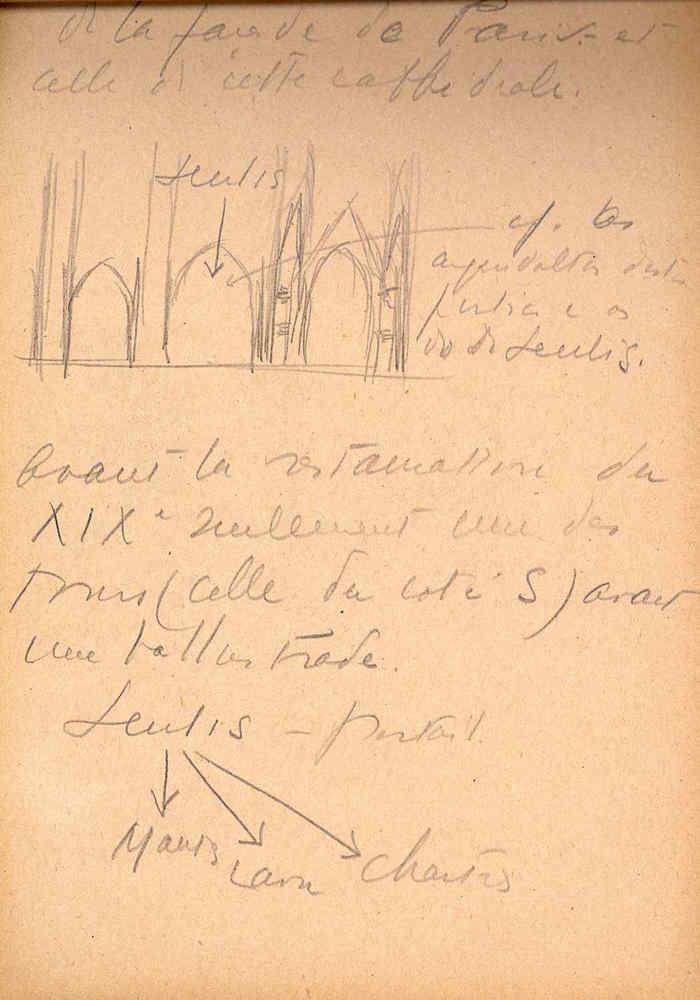 de la façade de Paris et
celle de cette cathédrale.
Senlis
cf. les
de Senlis.
avant la restauration du
XIXe seulement une des
tours (celle du coté S) avait
une ballustrade.
Senlis – portail
Mantes
Laon
Chartres